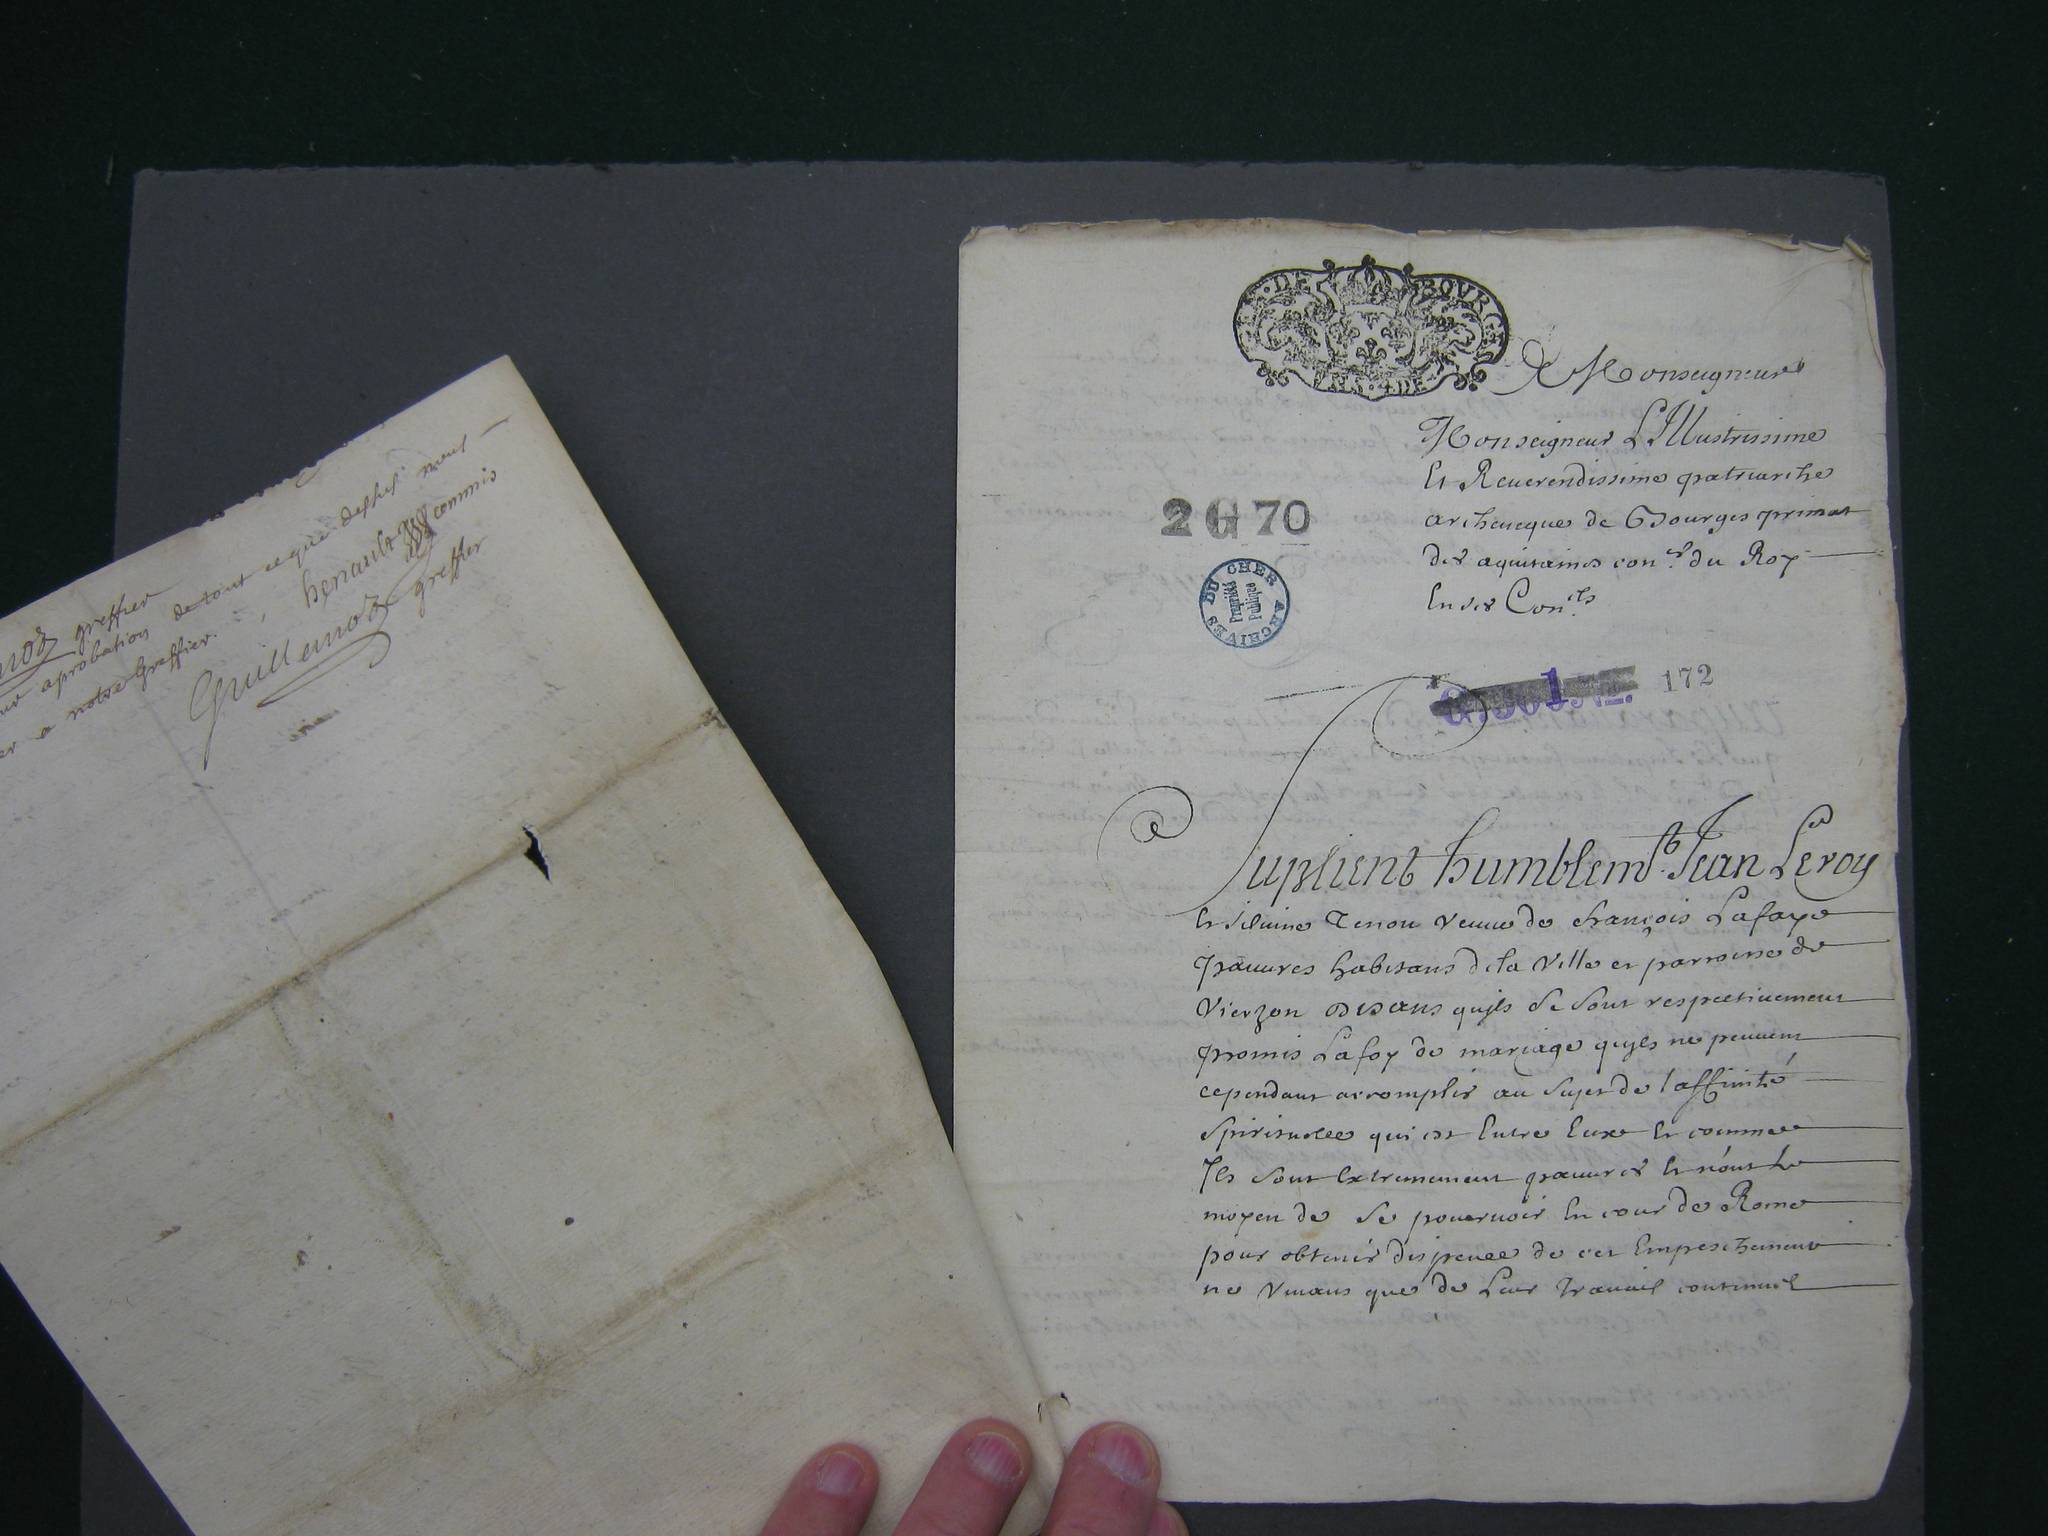 greffier
aprobation de tout ce que dessus
a notre Greffier.
henault commis
Guillemot greffier
GEN · DE BOURGES
A Monseigneur
Monseigneur L'Illustrissime
Et Reuerendissime patriarche
archeueque de Bourges primat
des aquitaines con.er du Roy
En ses Con.ils
2 G 70
ARCHIVES DU CHER
Propriété
Publique
172
Suplient humblemt. Jean Leroy
Et Siluine Tenon veuue de françois Lafaye
pauures habitans de la Ville et parroisse de
Vierzon Disans qu'jls se sont respectiuement
promis Lafoy de mariage qu'jls ne peuuent
cependant accomplir au sujet de l'affinité
Spirituelle qui est Entre Eux Et comme
Ils sont Extremement pauures Et n'ont Le
moyen de se pouruoir En cour de Rome
pour obtenir dispence de cet Empeschement
ne Viuans que de Leur trauail continuel